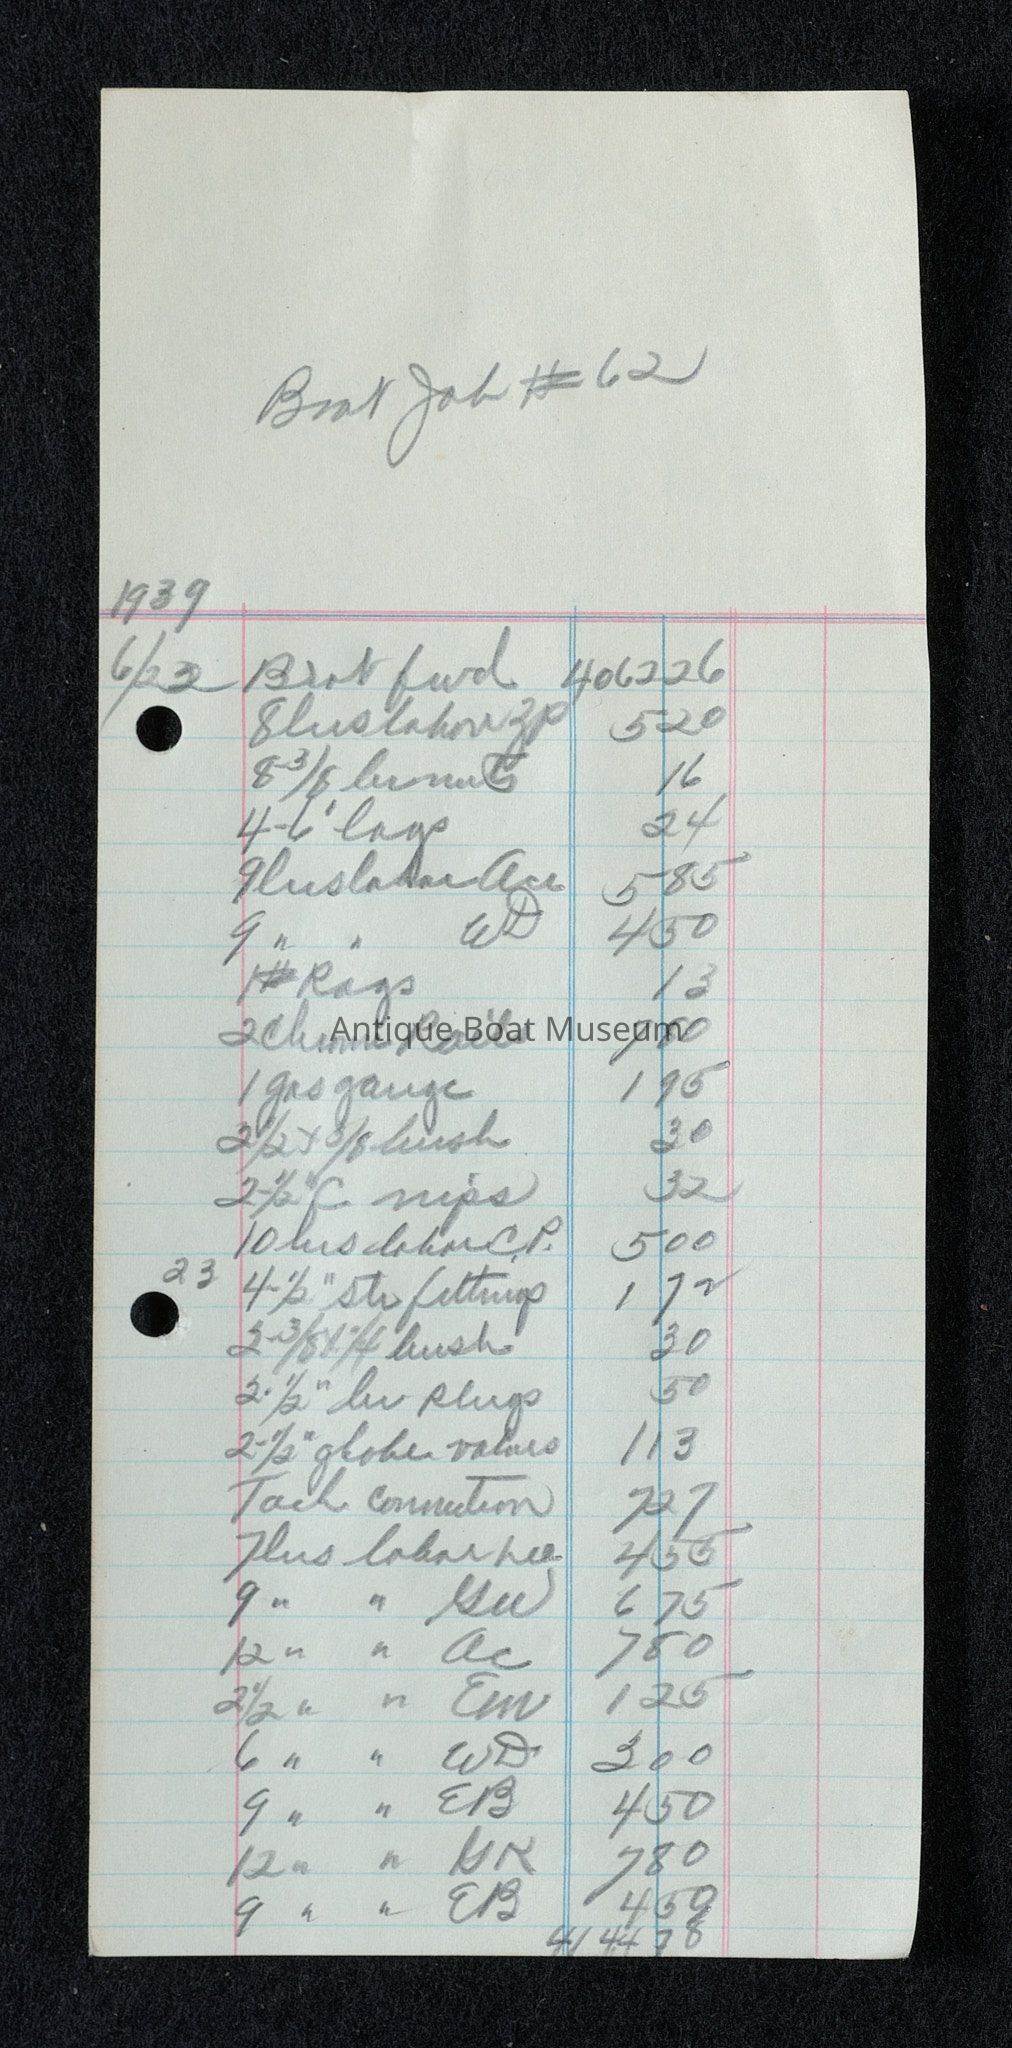 Boat Job # 62
1939
6/22 Brot fwd 4062 26
8 hrs labor ZP 5 20
8-3/8 br nuts 16
4-6" lags 24
9 hrs labor Ace 5 85
9 " " WD 4 50
1# Rags 13
2 Chrome Rails 7 60
1 gas gauge 1 95
2 1/2 x 3/8 bush 30
2-1/2" C nips 32
10 hrs labor C.P. 5 00
23 4-1/2" Str fittings 1 72
2-3/8 x 1/4 bush 30
2-1/2" br plugs 50
2-1/2" globe valves 1 13
Tach connection 7 27
7 hrs labor Lee 4 55
9 " " GW 6 75
12 " " Ac 7 80
2 1/2 " " EW 1 25
6 " " WD 3 00
9 " " EB 4 50
12 " " GK 7 80
9 " " EB 4 50
4144 78
Antique Boat Museum